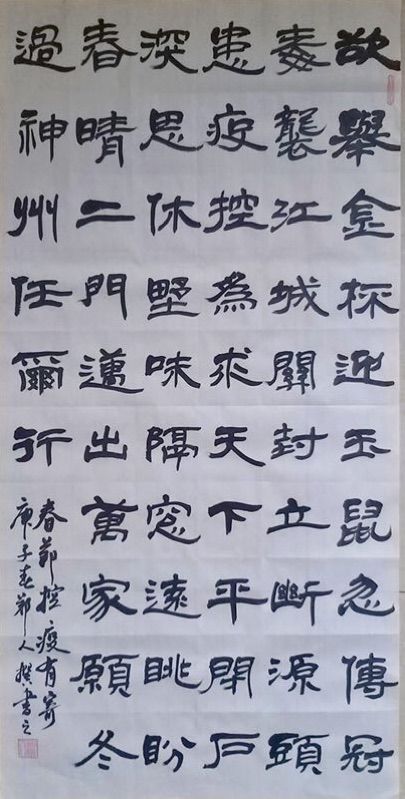 欲舉金杯迎玉鼠忽傳冠
毒襲江城關封立斷源頭
患疫控為求天下平閉戶
深思休野味隔窓遠眺盼
春晴二門邁出萬家願冬
過神州任爾行
春節控疫有寄
庚子春鄭人撰書之